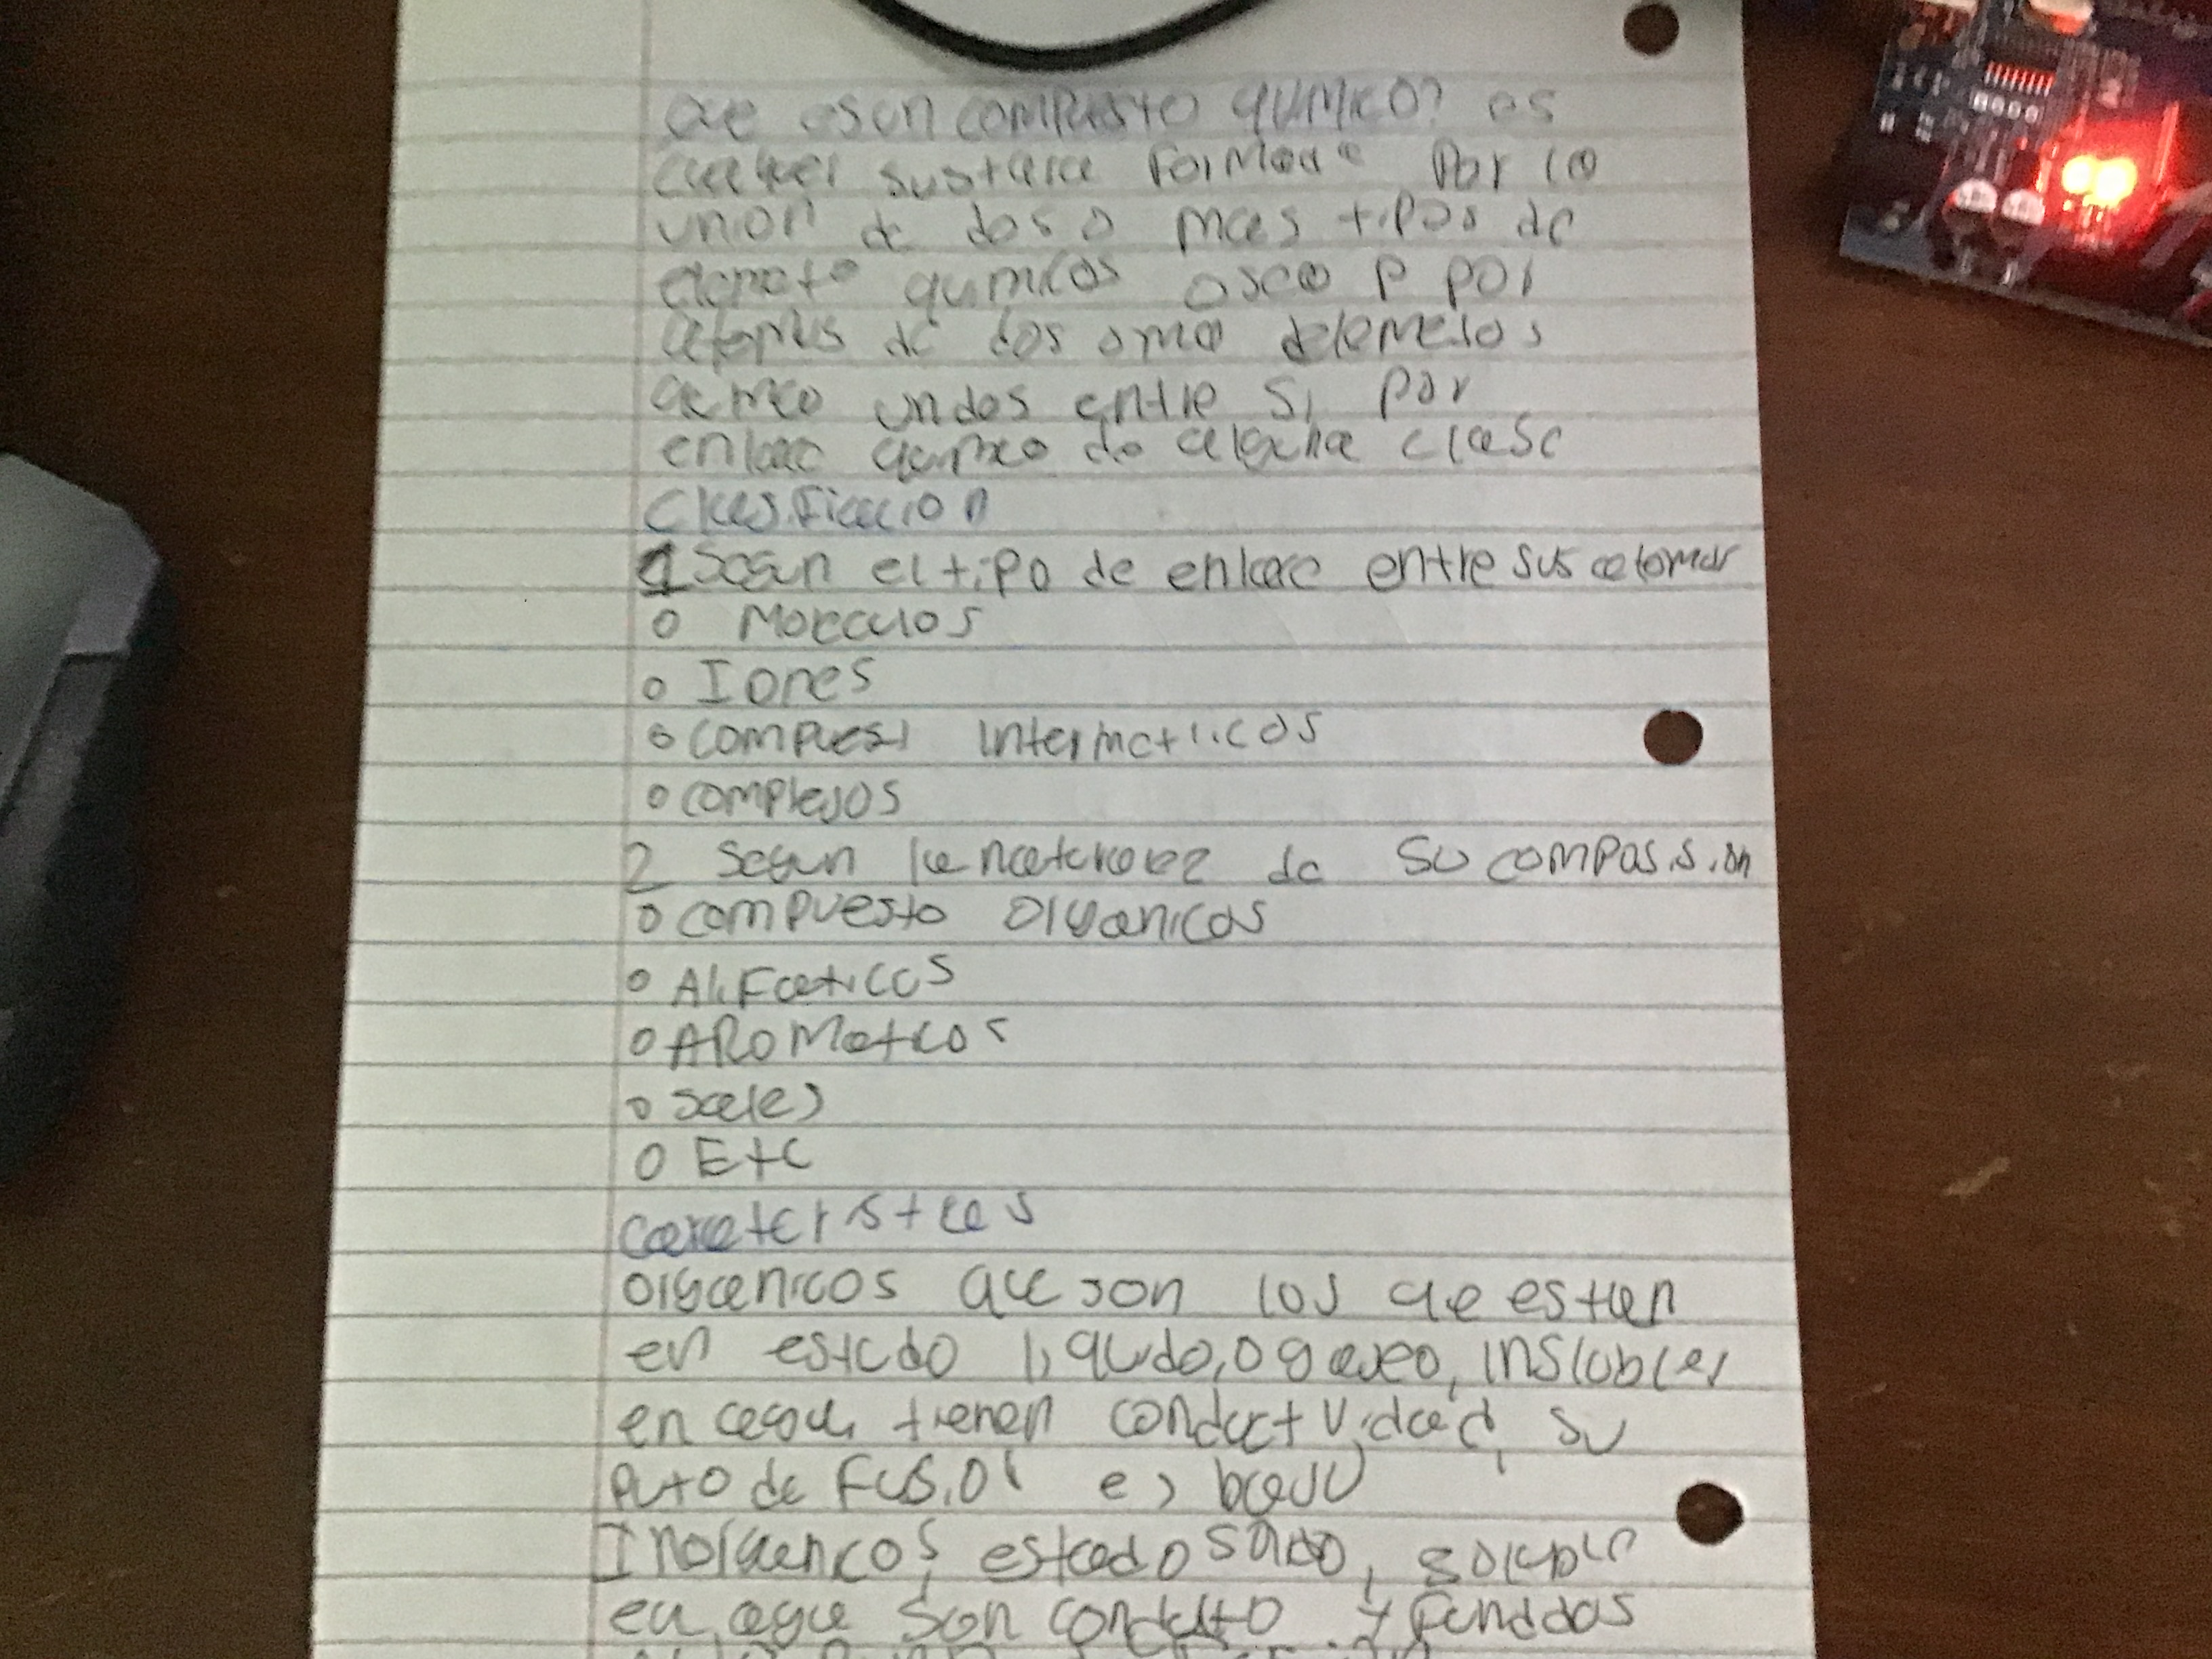 Que es un compuesto qumico? es
cualquer sustacia Formada Por la
union de dos o mas tipos de
elemeto qumicos osea p por
atomos de dos o ma delemetos
qumco undos entre si por
enlac qumco de alguna clase
Clasificacion
1 Segun el tipo de enlac entre sus atomos
o Moleculos
o Iones
o Compuest intermetlicos
o complejos
2 Segun la naturalez de su composision
o compuesto organicos
o Alifaticos
o AROMaticos
o Sales
o Etc
Carateristcas
organicos que son los que estan
en estado liqudo, o gaseo, inslubles
en agua, tienen conductividad, su
puto de Fusion es baju
Inorganicos, estado solido, soluble
en agua son conducto y Fundidos